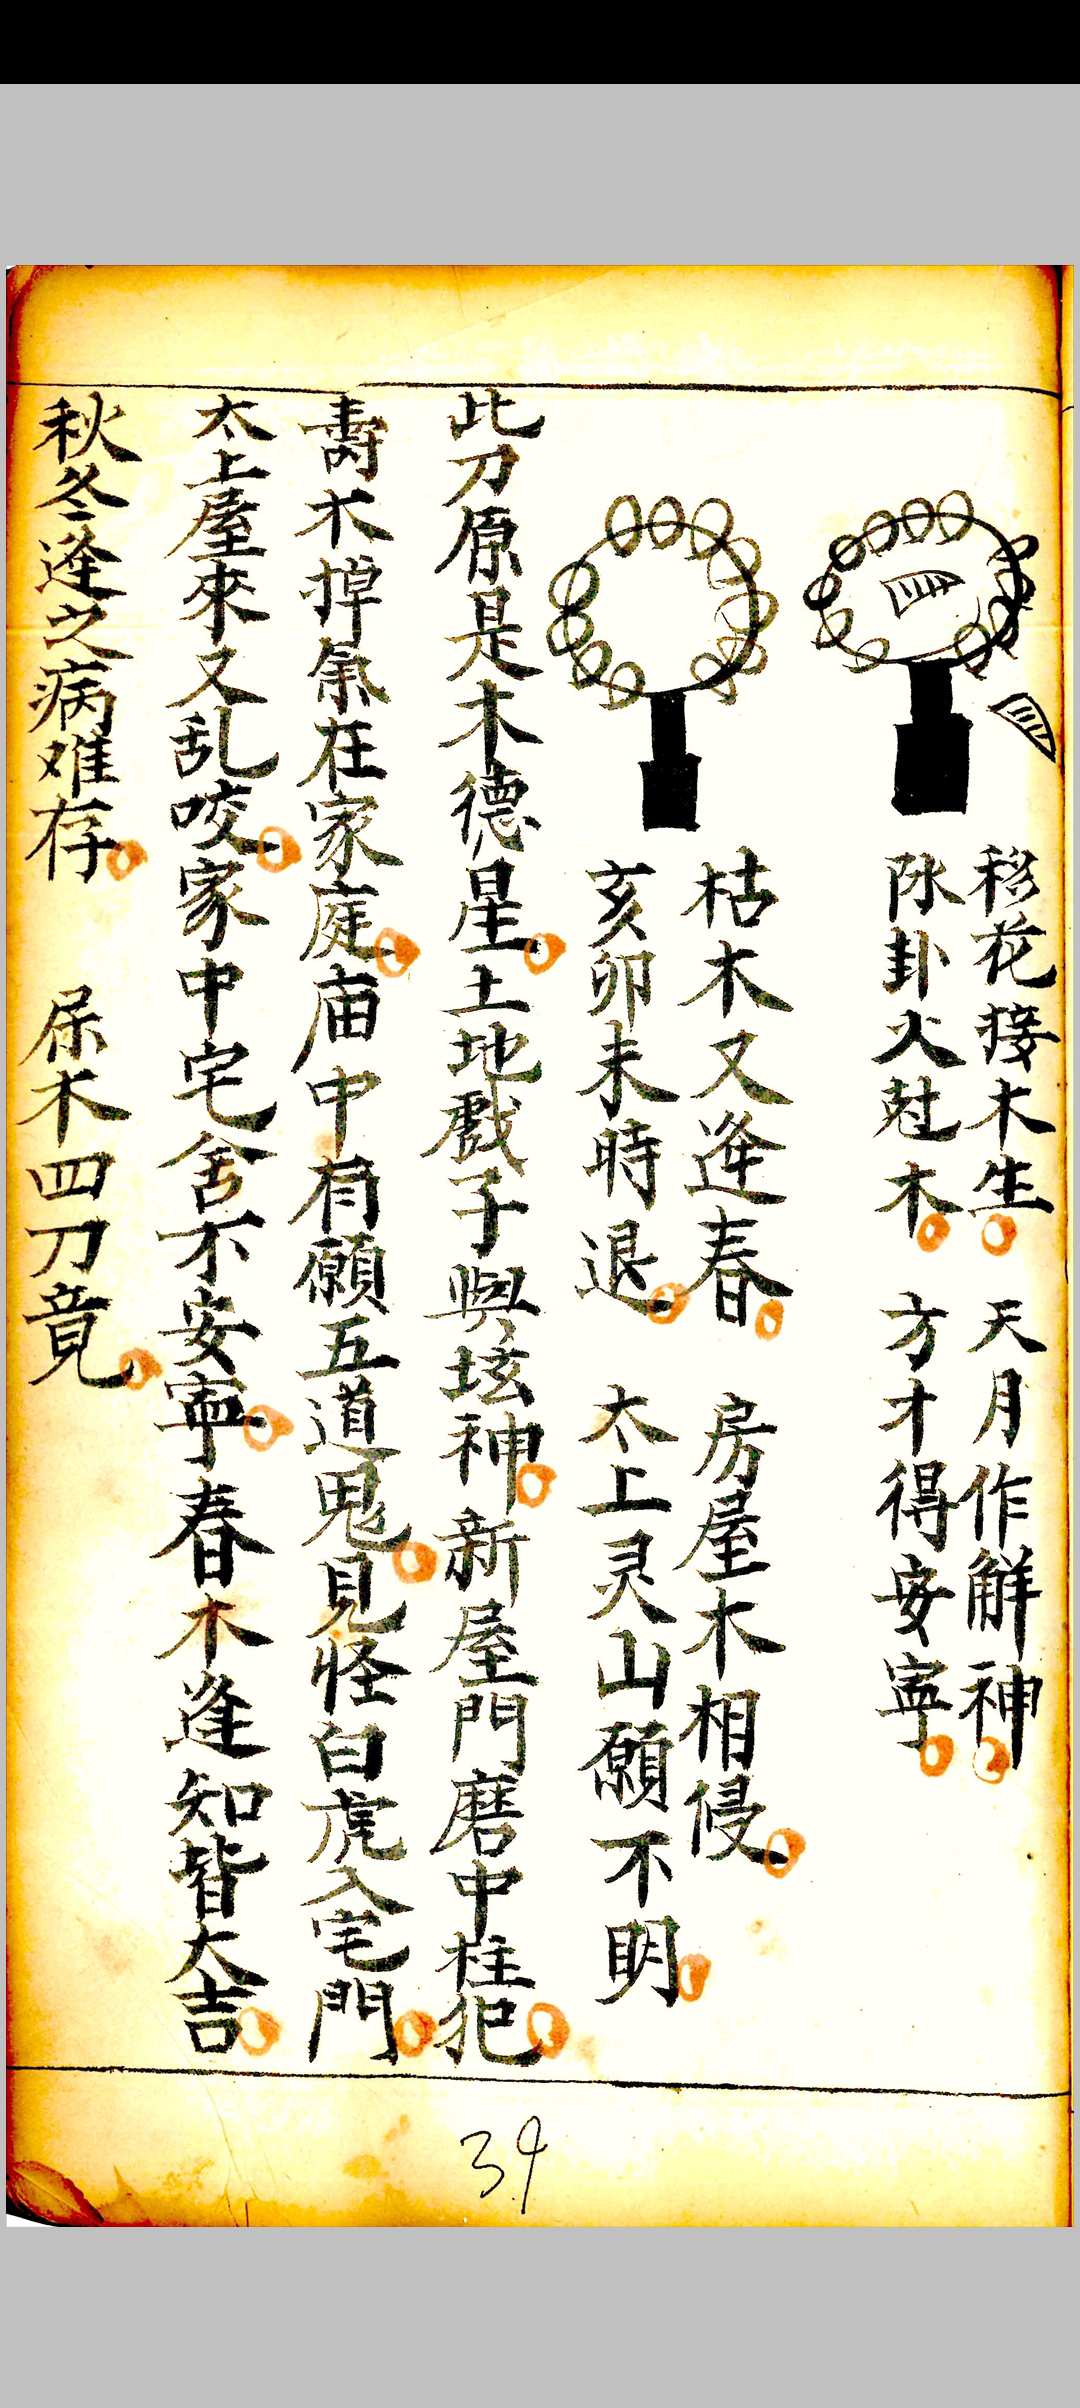 移花接木生 天月作解神
除卦火尅木 方才得安寧
枯木又逢春 房屋木相侵
亥卯未時退 太上灵山願不明
此刀原是木德星土地戲子與坛神新屋門磨中柱犯
壽木掉氣在家庭庙中有願五道鬼見怪白虎入宅門
太上屋來又乱咬家中宅舍不安寧春木逢知皆大吉
秋冬逢之病难存 属木四刀竟
39